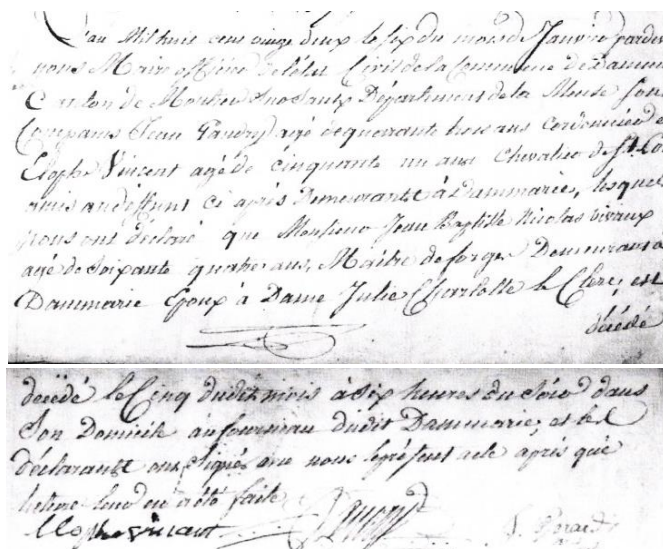 L'an Mil huit cent vingt deux le six du mois de Janvier pardev
nous Maire officier de l'état Civil de la Commune de Dammar
Canton de Montier Département de la Meuse son
Comparus Jean agé de quarante trois ans Cordonnier e
Elophe Vincent agé de Cinquante un ans Chevalier de St. Lo
amis au deffunt ci après Demeurants à Dammarie, lesquel
nous ont déclaré que Monsieur Jean Baptiste Nicolas Vivaux
agé de Soixante quatre ans, Maître de forges Demeurant à
Dammarie Epoux à Dame Julie Charlotte le Clerc, est
décédé
décédé le Cinq dudit mois à Six heures du Soir dans
Son Domicile au fourneau dudit Dammarie, et les
déclarants ont signés avec nous le présent acte après que
lecture leur en a été faite
Elophe Vincent